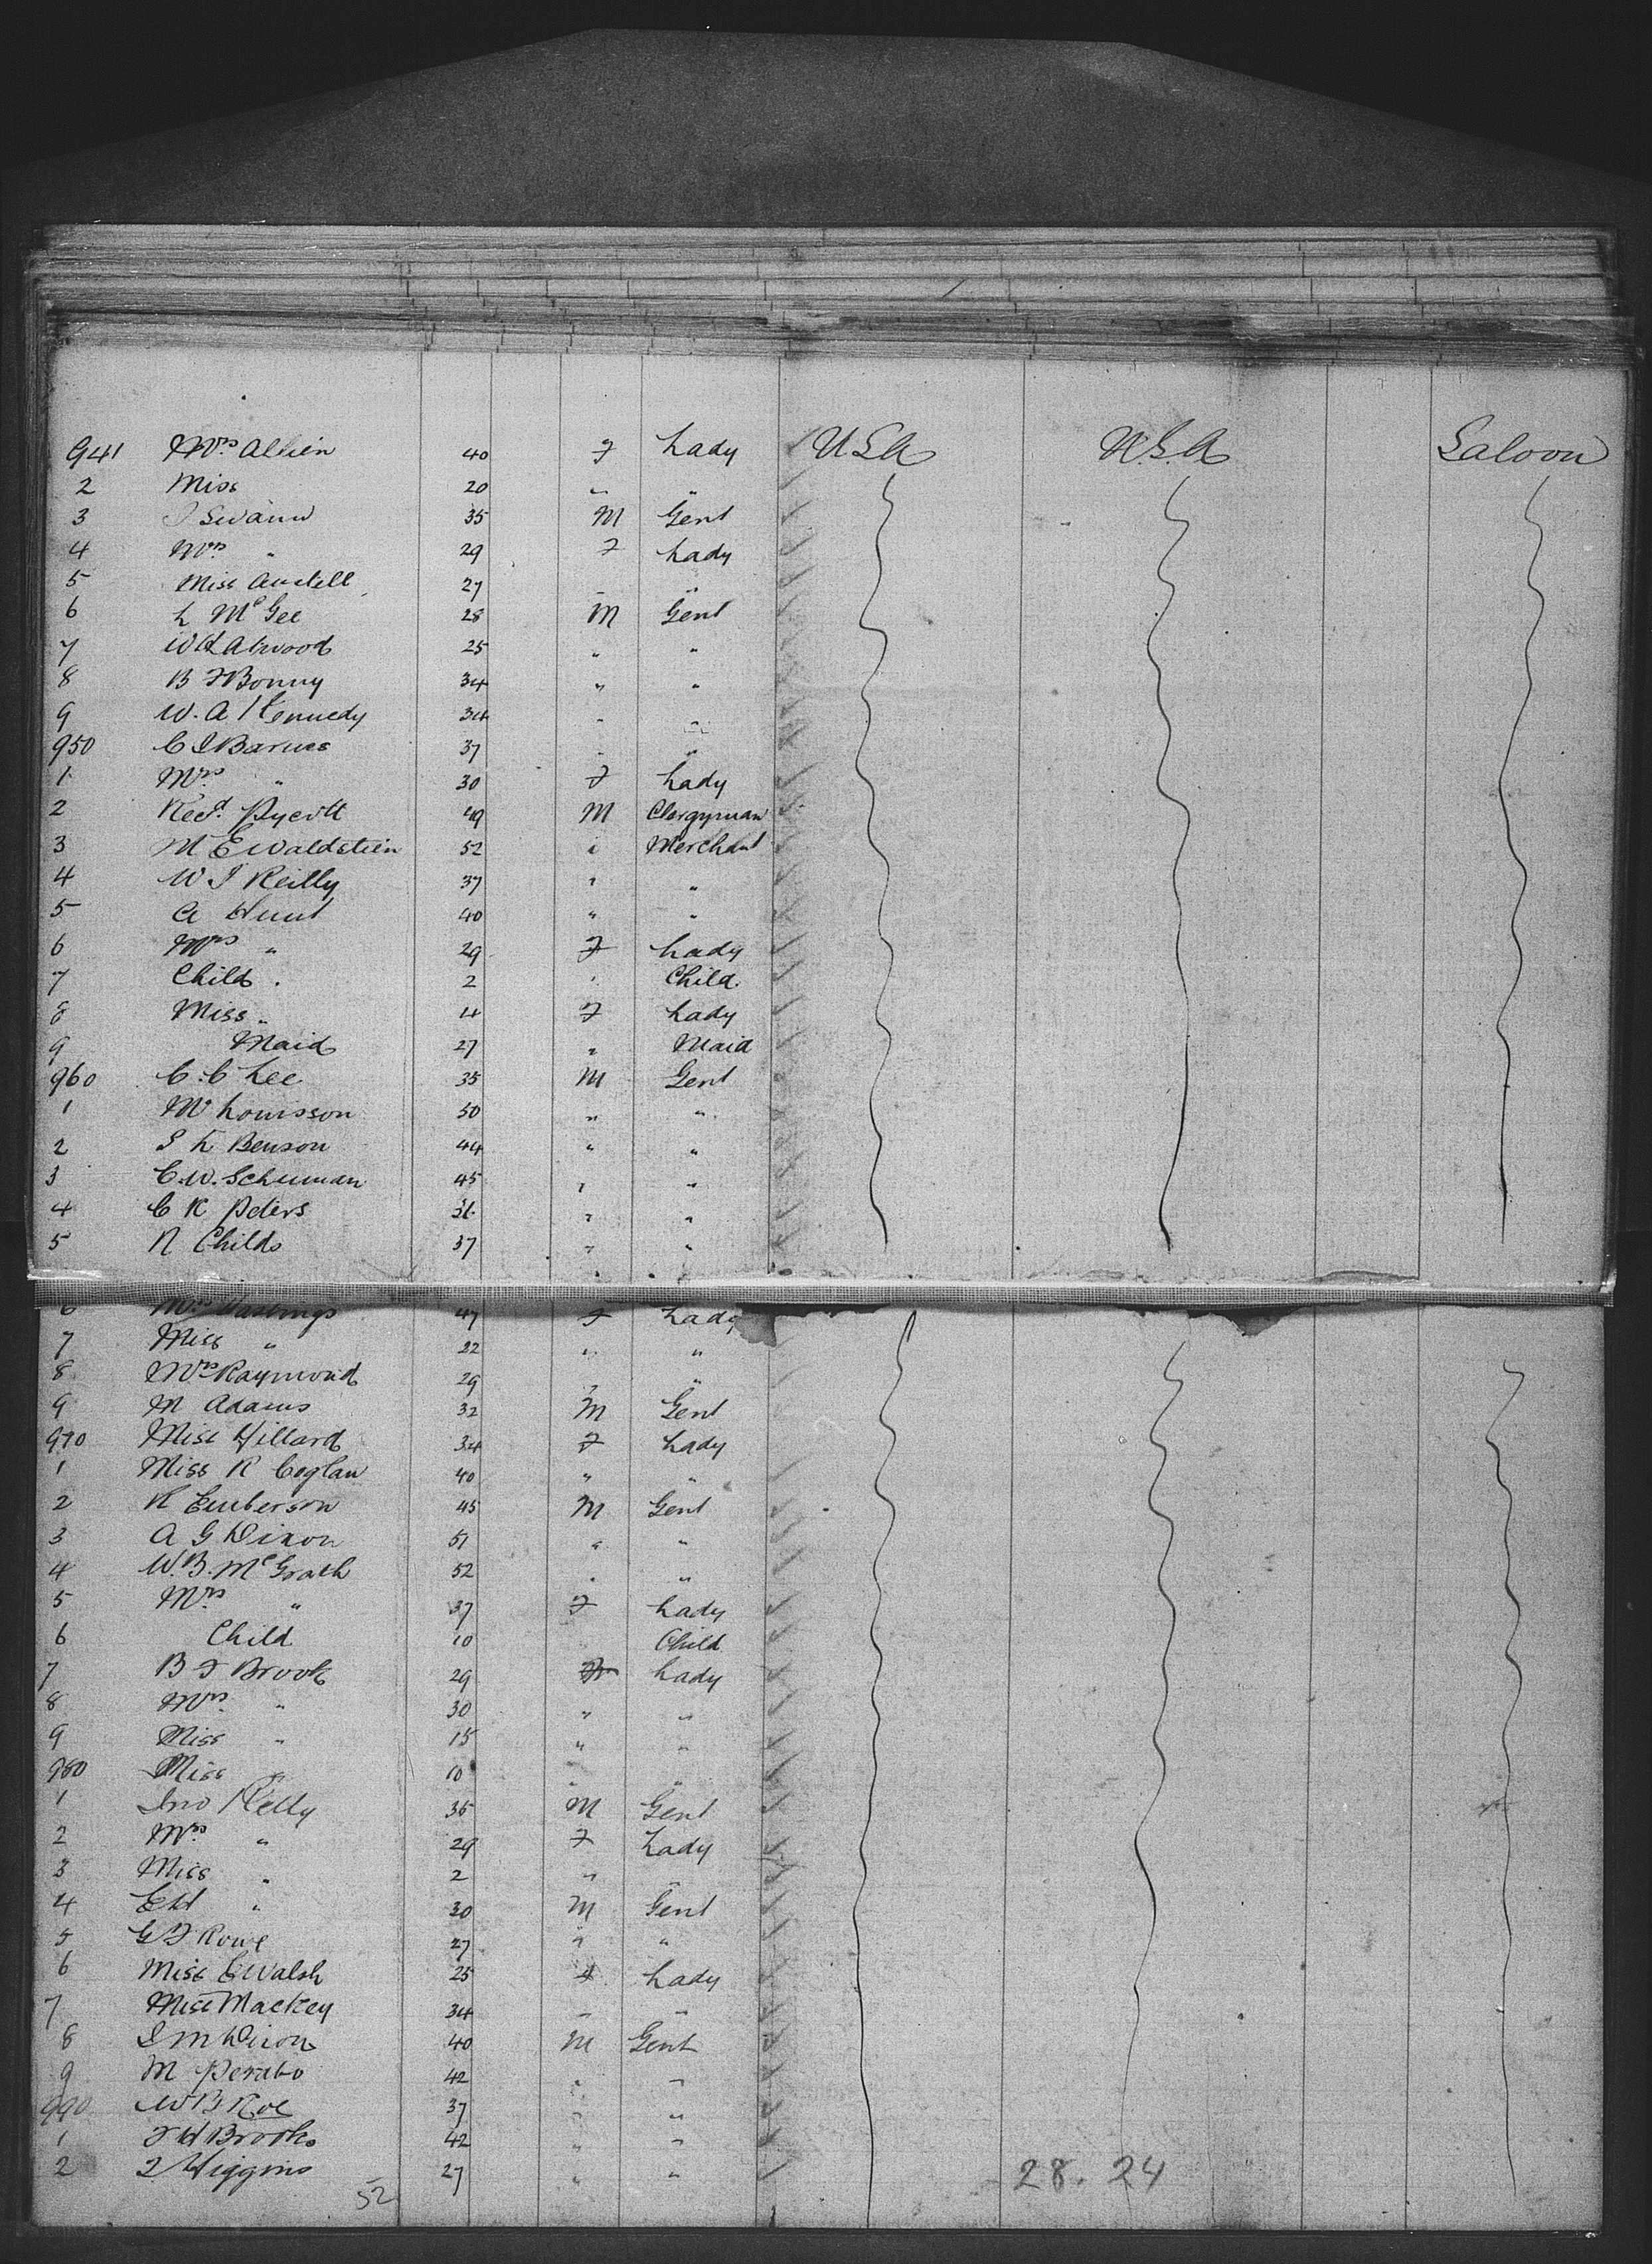 941 Mrs Allien 40 F Lady USA U.S.A Saloon
2 Miss 20 " "
3 J Swann 35 M Gent
4 Mrs " 29 F Lady
5 Miss Austell 27 " "
6 L McGee 28 M Gent
7 W H Atwood 25 " "
8 B F Bonny 34 " "
9 W. A. Kennedy 34 " "
950 C I Barnes 37 " "
1 Mrs " 30 F Lady
2 49 M Clergyman
3 M E Waldstein 52 " Merchant
4 W J Reilly 37 " "
5 A Hunt 40 " "
6 Mrs " 29 F Lady
7 Child " 2 " Child
8 Miss " 4 F Lady
9 Maid 27 " Maid
960 C. C Lee 35 M Gent
1 M Louisson 50 " "
2 S L Benson 44 " "
3 C. W. Schuman 45 " "
4 C K Peters 36 " "
5 N Childs 37 " "
6 Mrs Hastings 47 F Lady
7 Miss " 22 " "
8 Mrs Raymond 29 " "
9 M Adams 32 M Gent
970 Miss Hillard 34 F Lady
1 Miss R Coglan 40 " "
2 R Emberson 45 M Gent
3 A G Dixon 51 " "
4 W. B. McGrath 52 " "
5 Mrs " 37 F Lady
6 Child 10 Child
7 B F Brook 29 Lady
8 Mrs " 30 " "
9 Miss " 15 " "
980 Miss " 10 " "
1 Jno Kelly 35 M Gent
2 Mrs " 29 F Lady
3 Miss " 2 " "
4 E H " 30 M Gent
5 G F Rowe 27 " "
6 Miss E Walsh 25 F Lady
7 Miss Mackey 34 " "
8 J M Dixon 40 M Gent
9 M Perabo 42 " "
990 W B Roe 37 " "
1 F H Brooks 42 " "
2 J Higgins 27 " "
52 28. 24